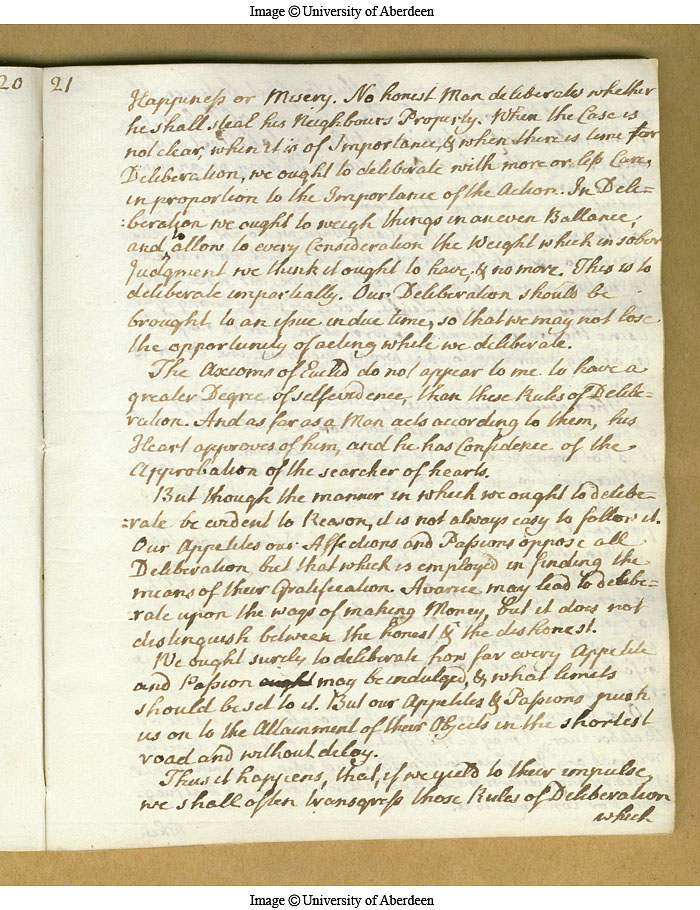 Image © University of Aberdeen
20 21
Happiness or Misery. No honest Man deliberates whether
he shall steal his Neighbours Property. When the Case is
not clear, when it is of Importance, & when there is time for
Deliberation, we ought to deliberate with more or less Care,
in proportion to the Importance of the Action. In Deli=
:beration we ought to weigh things in an even Ballance,
and allow to every Consideration the Weight which in sober
Judgment we think it ought to have, & no more. This is to
deliberate impartially. Our Deliberation should be
brought to an issue in due time, so that we may not lose
the opportunity of acting while we deliberate.
The Axioms of Euclid do not appear to me to have a
greater Degree of selfevidence, than these Rules of Delibe-
ration. And as far as a Man acts according to them, his
Heart approves of him, and he has Confidence of the
Approbation of the searcher of hearts.
But though the manner in which we ought to delibe-
:rate be evident to Reason, it is not always easy to follow it.
Our Appetites our Affections and Passions oppose all
Deliberation but that which is employed in finding the
means of their Gratification. Avarice may lead to delibe-
rate upon the ways of making Money, but it does not
distinguish between the honest & the dishonest.
We ought surely to deliberate how far every Appetite
and Passion ought may be indulged, & what limits
should be set to it. But our Appetites & Passions push
us on to the Attainment of their Objects in the shortest
road and without delay.
Thus it happens, that, if we yield to their impulse,
we shall often transgress those Rules of Deliberation
which
Image © University of Aberdeen